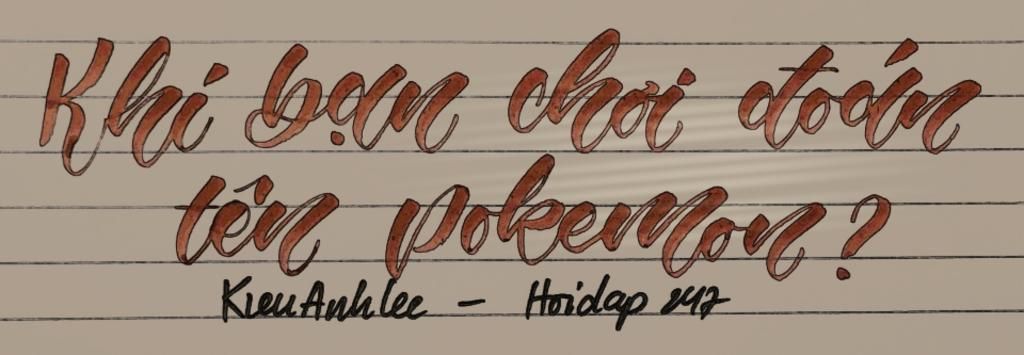 Khi bạn chơi đoán
tên pokemon?
KieuAnhlee - Hoidap 247